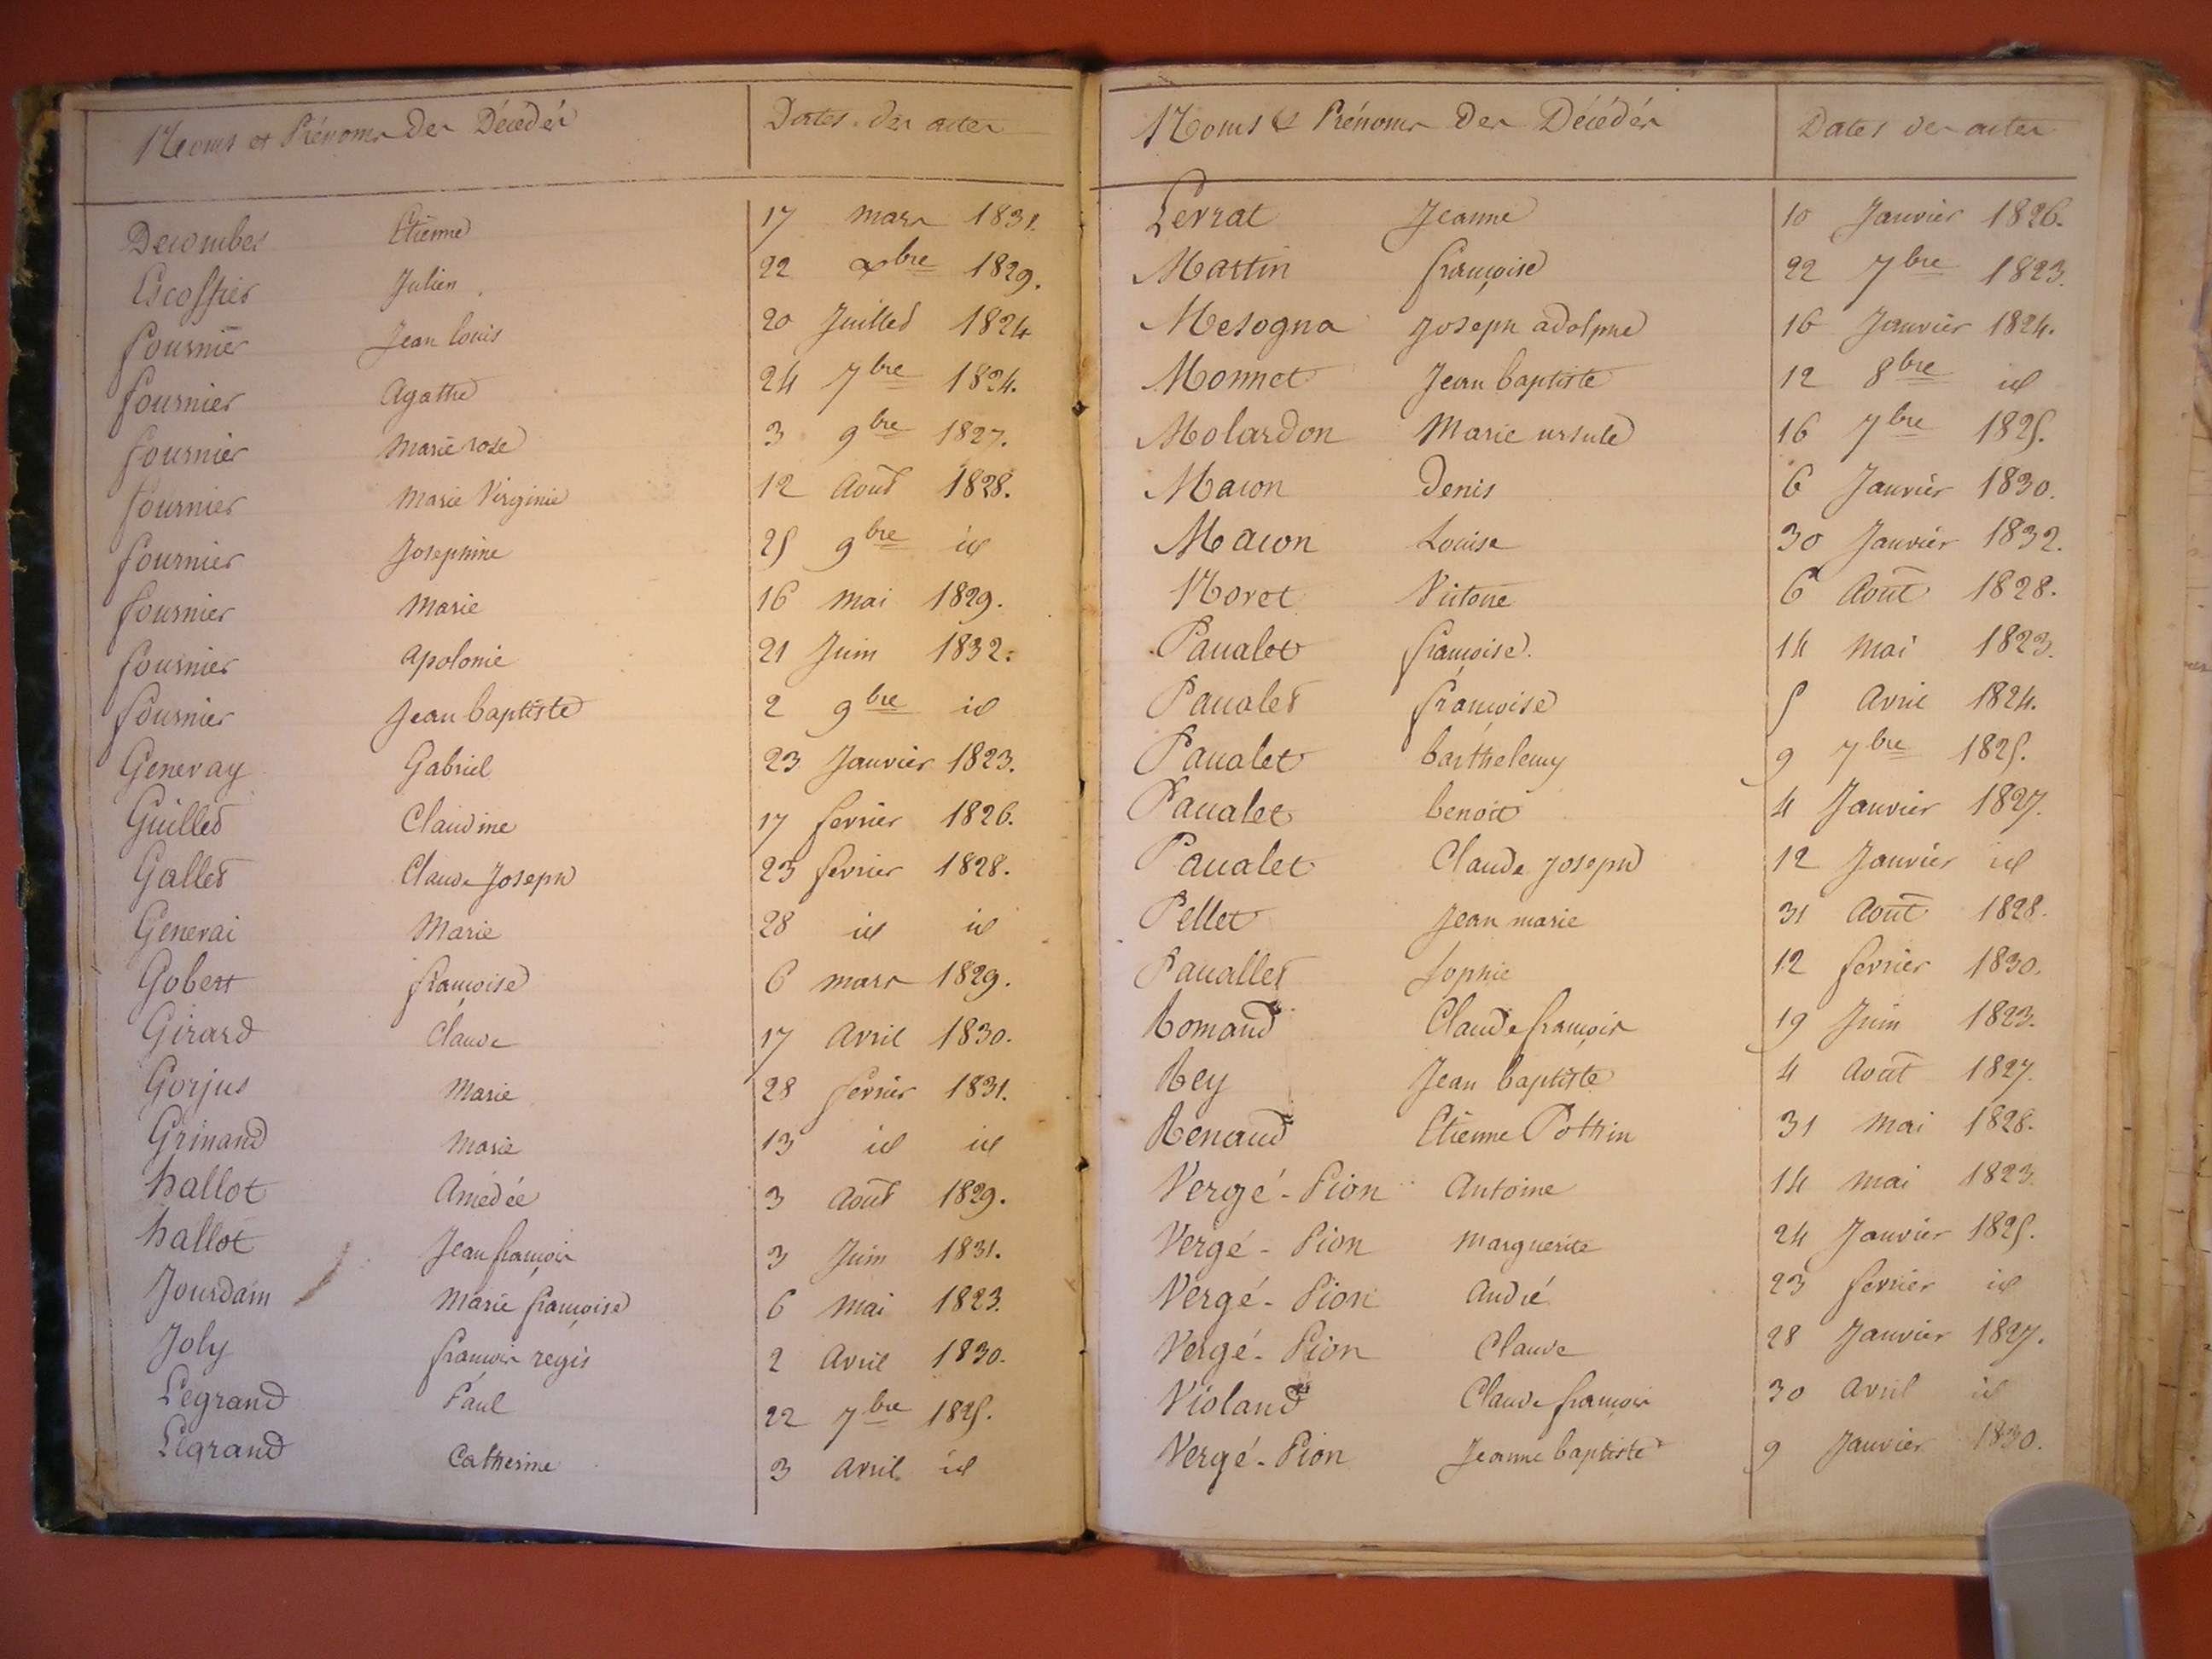 Noms et Prénoms des Décédés Dates des actes
Decombes Etienne 17 mars 1831.
Escoffier Julien 22 xbre 1829.
fournier Jean louis 20 Juillet 1824
fournier agathe 24 7bre 1824.
fournier Marie rose 3 9bre 1827.
fournier Marie Virginie 12 Aout 1828.
fournier Josephine 25 9bre id
fournier Marie 16 mai 1829.
fournier apolonie 21 Juin 1832.
fournier Jean baptiste 2 9bre id
Genevay Gabriel 23 Janvier 1823.
Guillet Claudine 17 fevrier 1826.
Gallet Claude Joseph 23 fevrier 1828.
Genevai Marie 28 id id
Gobert françoise 6 mars 1829.
Girard Claude 17 Avril 1830.
Gorjus Marie 28 fevrier 1831.
Grinand Marie 13 id id
hallot Amédée 3 Août 1829.
hallot Jean françois 3 Juin 1831.
Jourdain Marie françoise 6 Mai 1823.
Joly françois regis 2 Avril 1830.
Legrand Paul 22 7bre 1825.
Legrand Catherine 3 avril id
Noms & Prénoms des Décédés Dates des actes
Levrat Jeanne 10 Janvier 1826.
Martin françoise 22 7bre 1823.
Mesogna Joseph adolphe 16 Janvier 1824.
Monnet Jean baptiste 12 8bre id
Molardon Marie ursule 16 7bre 1825.
Macon Denis 6 Janvier 1830.
Macon Louise 30 Janvier 1832.
Noret Victoire 6 Août 1828.
Paualet françoise. 14 Mai 1823.
Paualet françoise 5 avril 1824.
Paualet barthelemy 9 7bre 1825.
Paualet benoit 4 Janvier 1827.
Paualet Claude Joseph 12 Janvier id
Pellet Jean marie 31 Août 1828.
Pauallet Sophie 12 fevrier 1830.
Romand Claude françois 19 Juin 1823.
Rey Jean baptiste 4 Août 1827.
Renaud Etienne Pothin 31 Mai 1828.
Vergé-Pion Antoine 14 Mai 1823.
Vergé-Pion Marguerite 24 Janvier 1825.
Vergé-Pion André 23 fevrier id
Vergé-Pion Claude 28 Janvier 1827.
Violand Claude françois 30 avril id
Vergé-Pion Jeanne baptiste 9 Janvier 1830.